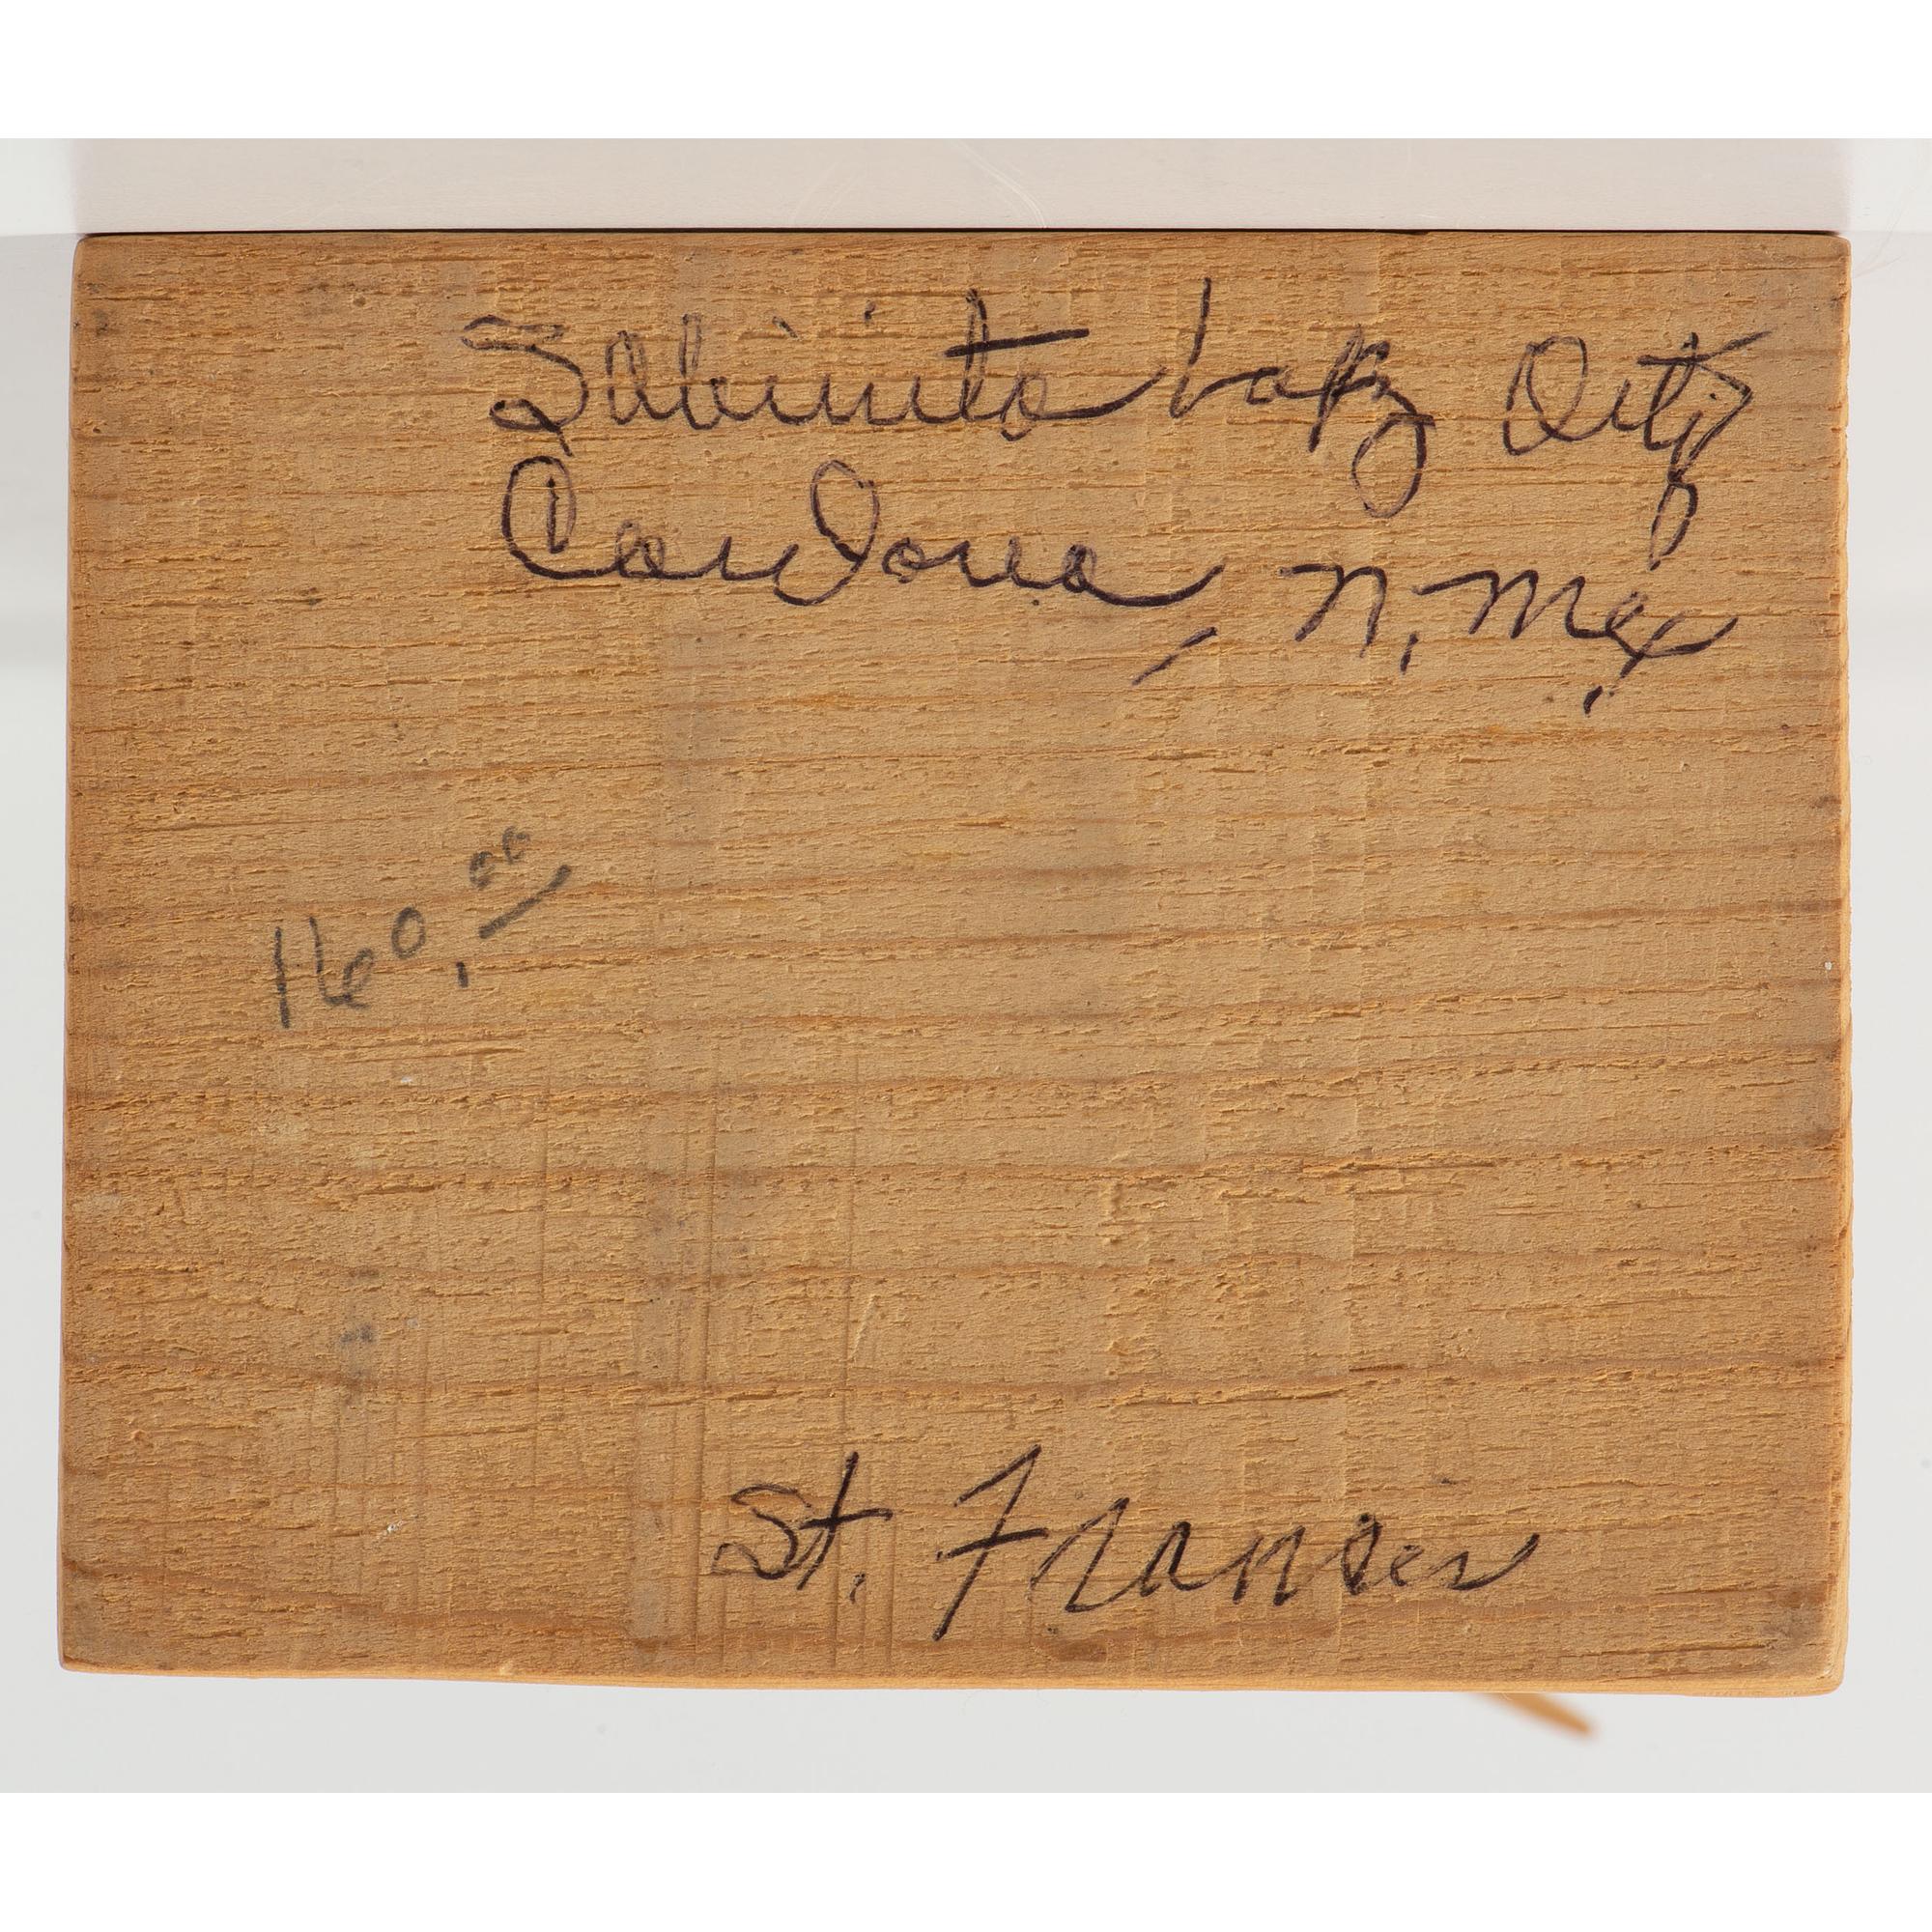 Sabinita Lopez Ortiz
Cordova, N. Mex.
160.00
St. Francis